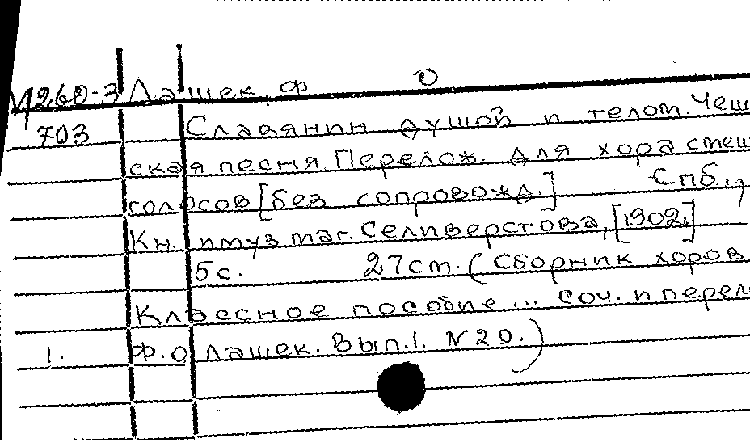 М260-3 Лашек, Ф О
703 Славянин душой и телом. Чеш
ская песня. Перелож. для хора смеш
голосов [без сопровожд.] Спб.,
Кн. и муз маг. Селиверстова, [1902.]
5с. 27см. (Сборник хоров
Классное пособие ... соч. и перел
1. Ф.О Лашек. Вып.1. N20.)